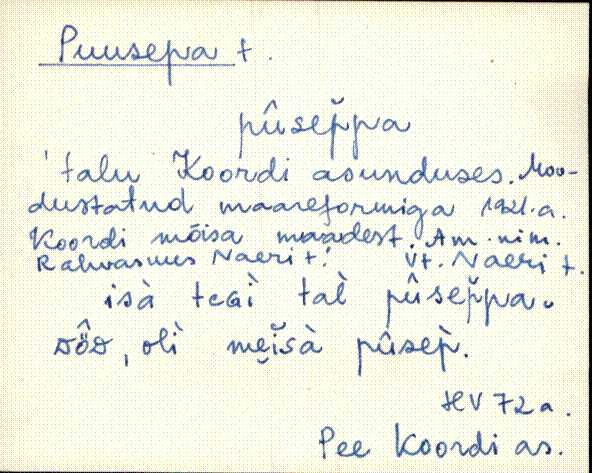 Puusepa t.
pûsep̆pa
talu Koordi asunduses. Moo-
dustatud maareformiga 1921.a.
Koordi mõisa maadest. Am. nim.
Rahvasuus Naeri t. Vt. Naeri t.
isà teɢì tal̀ pûsep̆pa.
, olì mĕi̯sà pûsep̀.
HV 72 a.
Pee Koordi as.